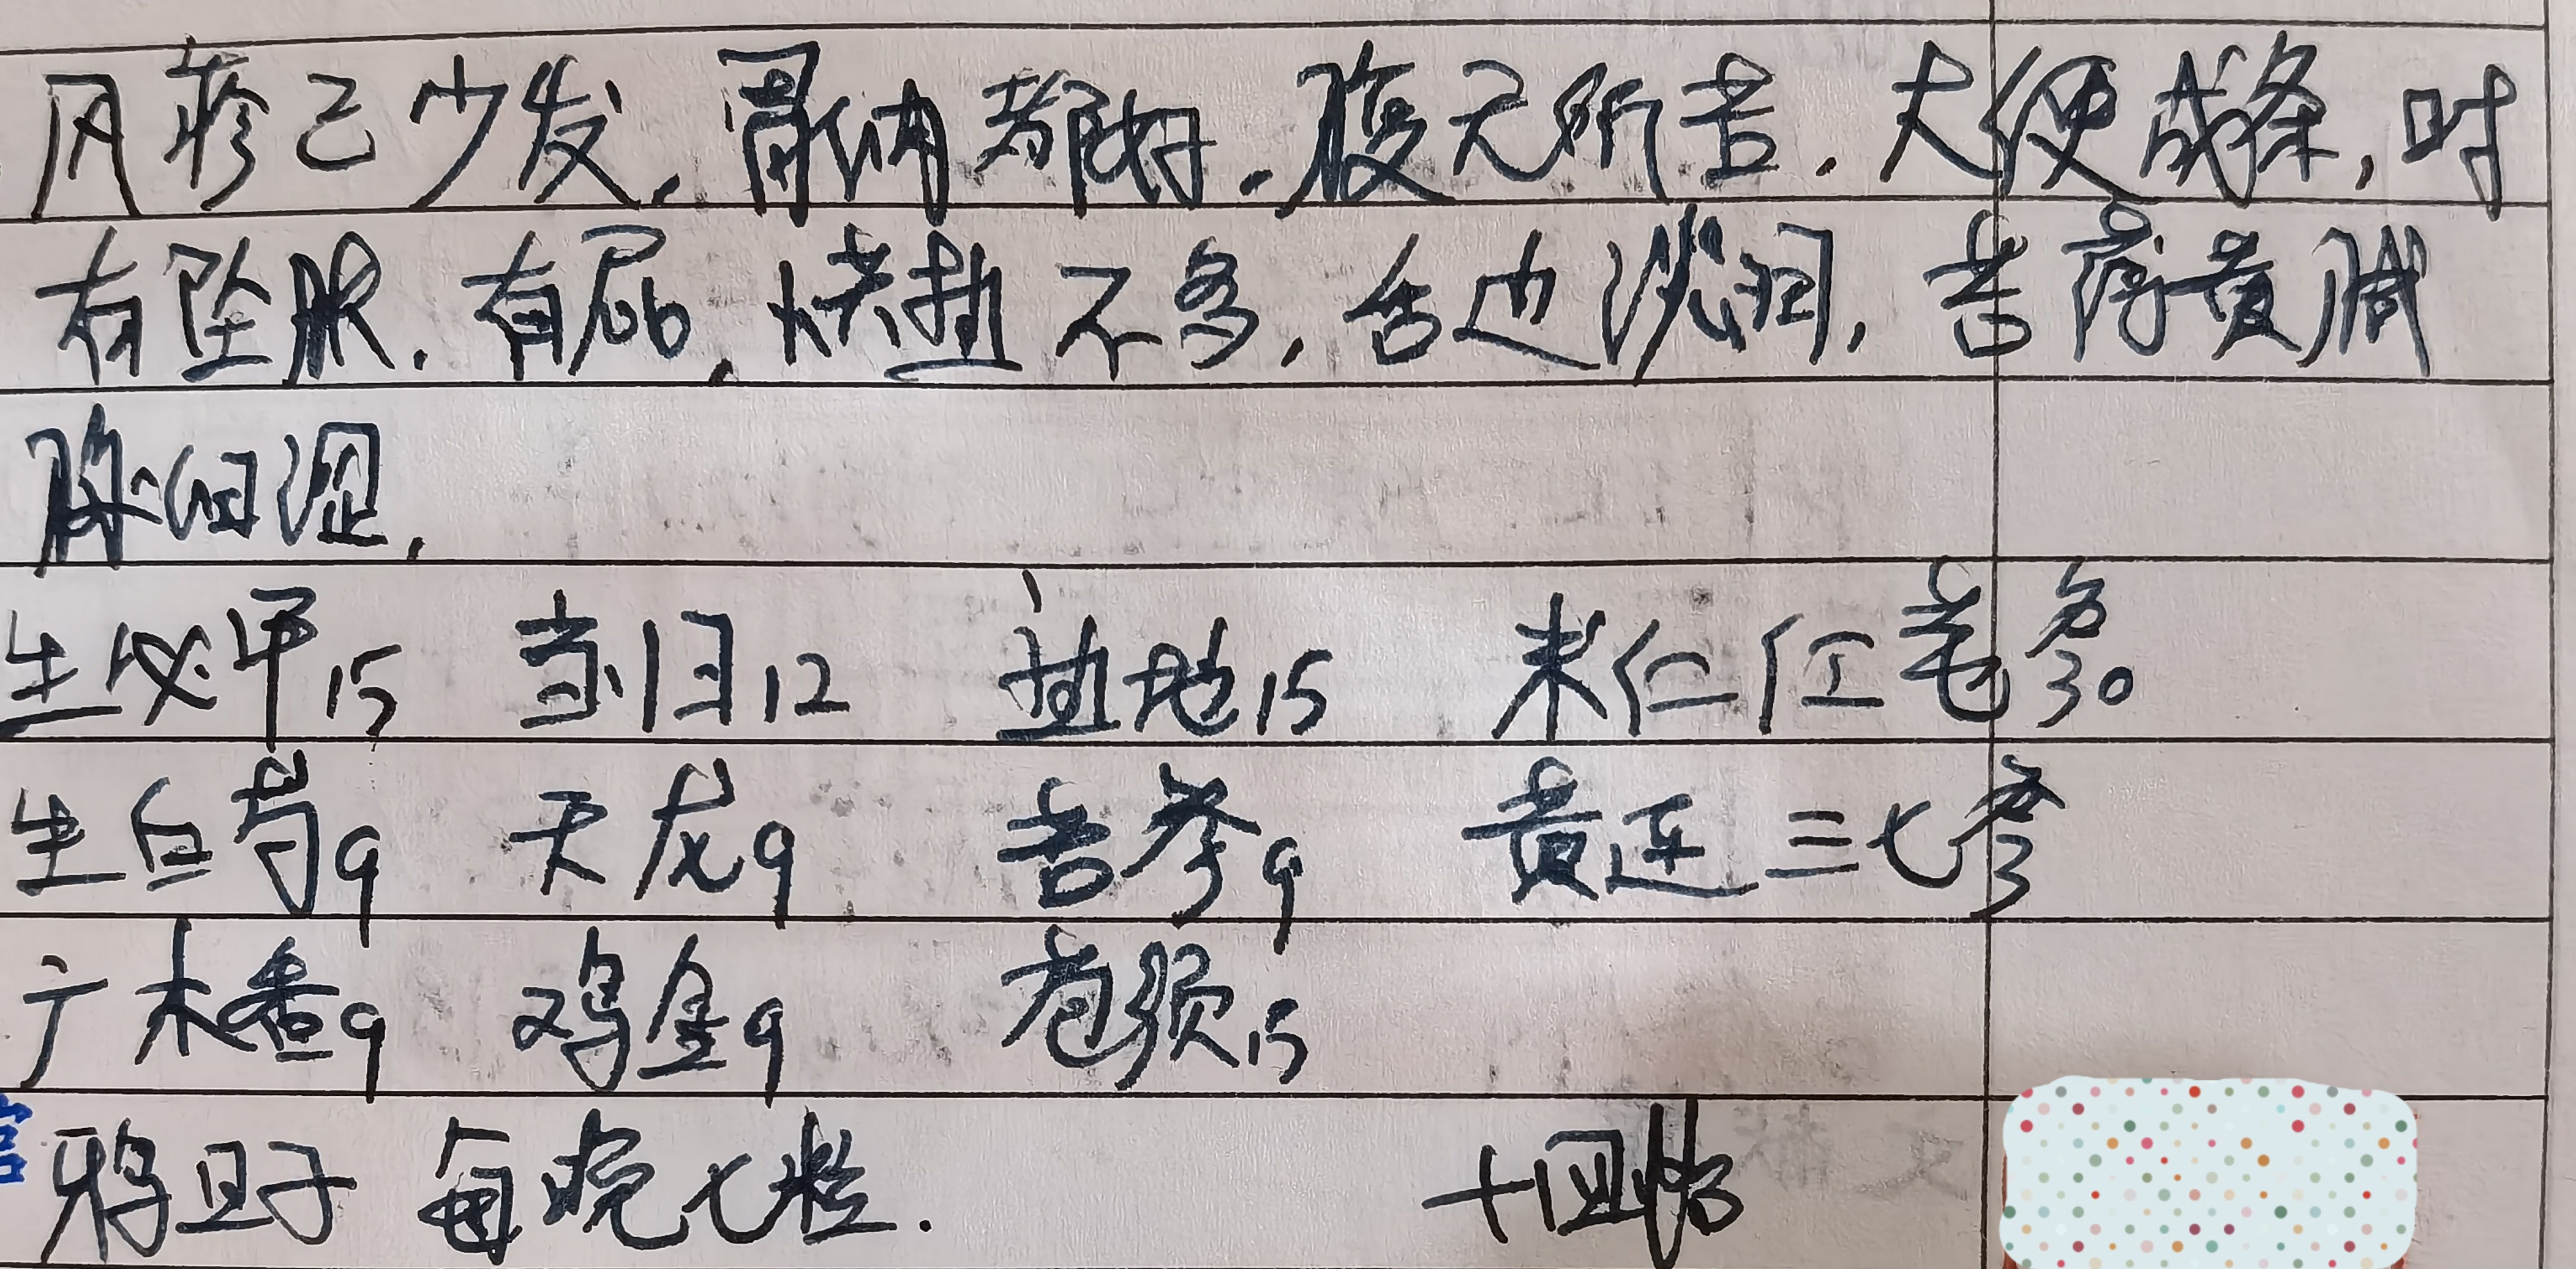 风疹已少发，胃纳都好，腹无所苦，大便成条，时
有坠胀，有屁，烘热不多，舌边淡润，苔薄黄腻
脉细涩，
生必甲15 当归12 熟地15 米仁仁苋各30
生白芍9 天龙9 苦参9 黄连三七各3
广木香9 鸡金9 苞须15
鸦旦子 每晚七粒. 十四帖